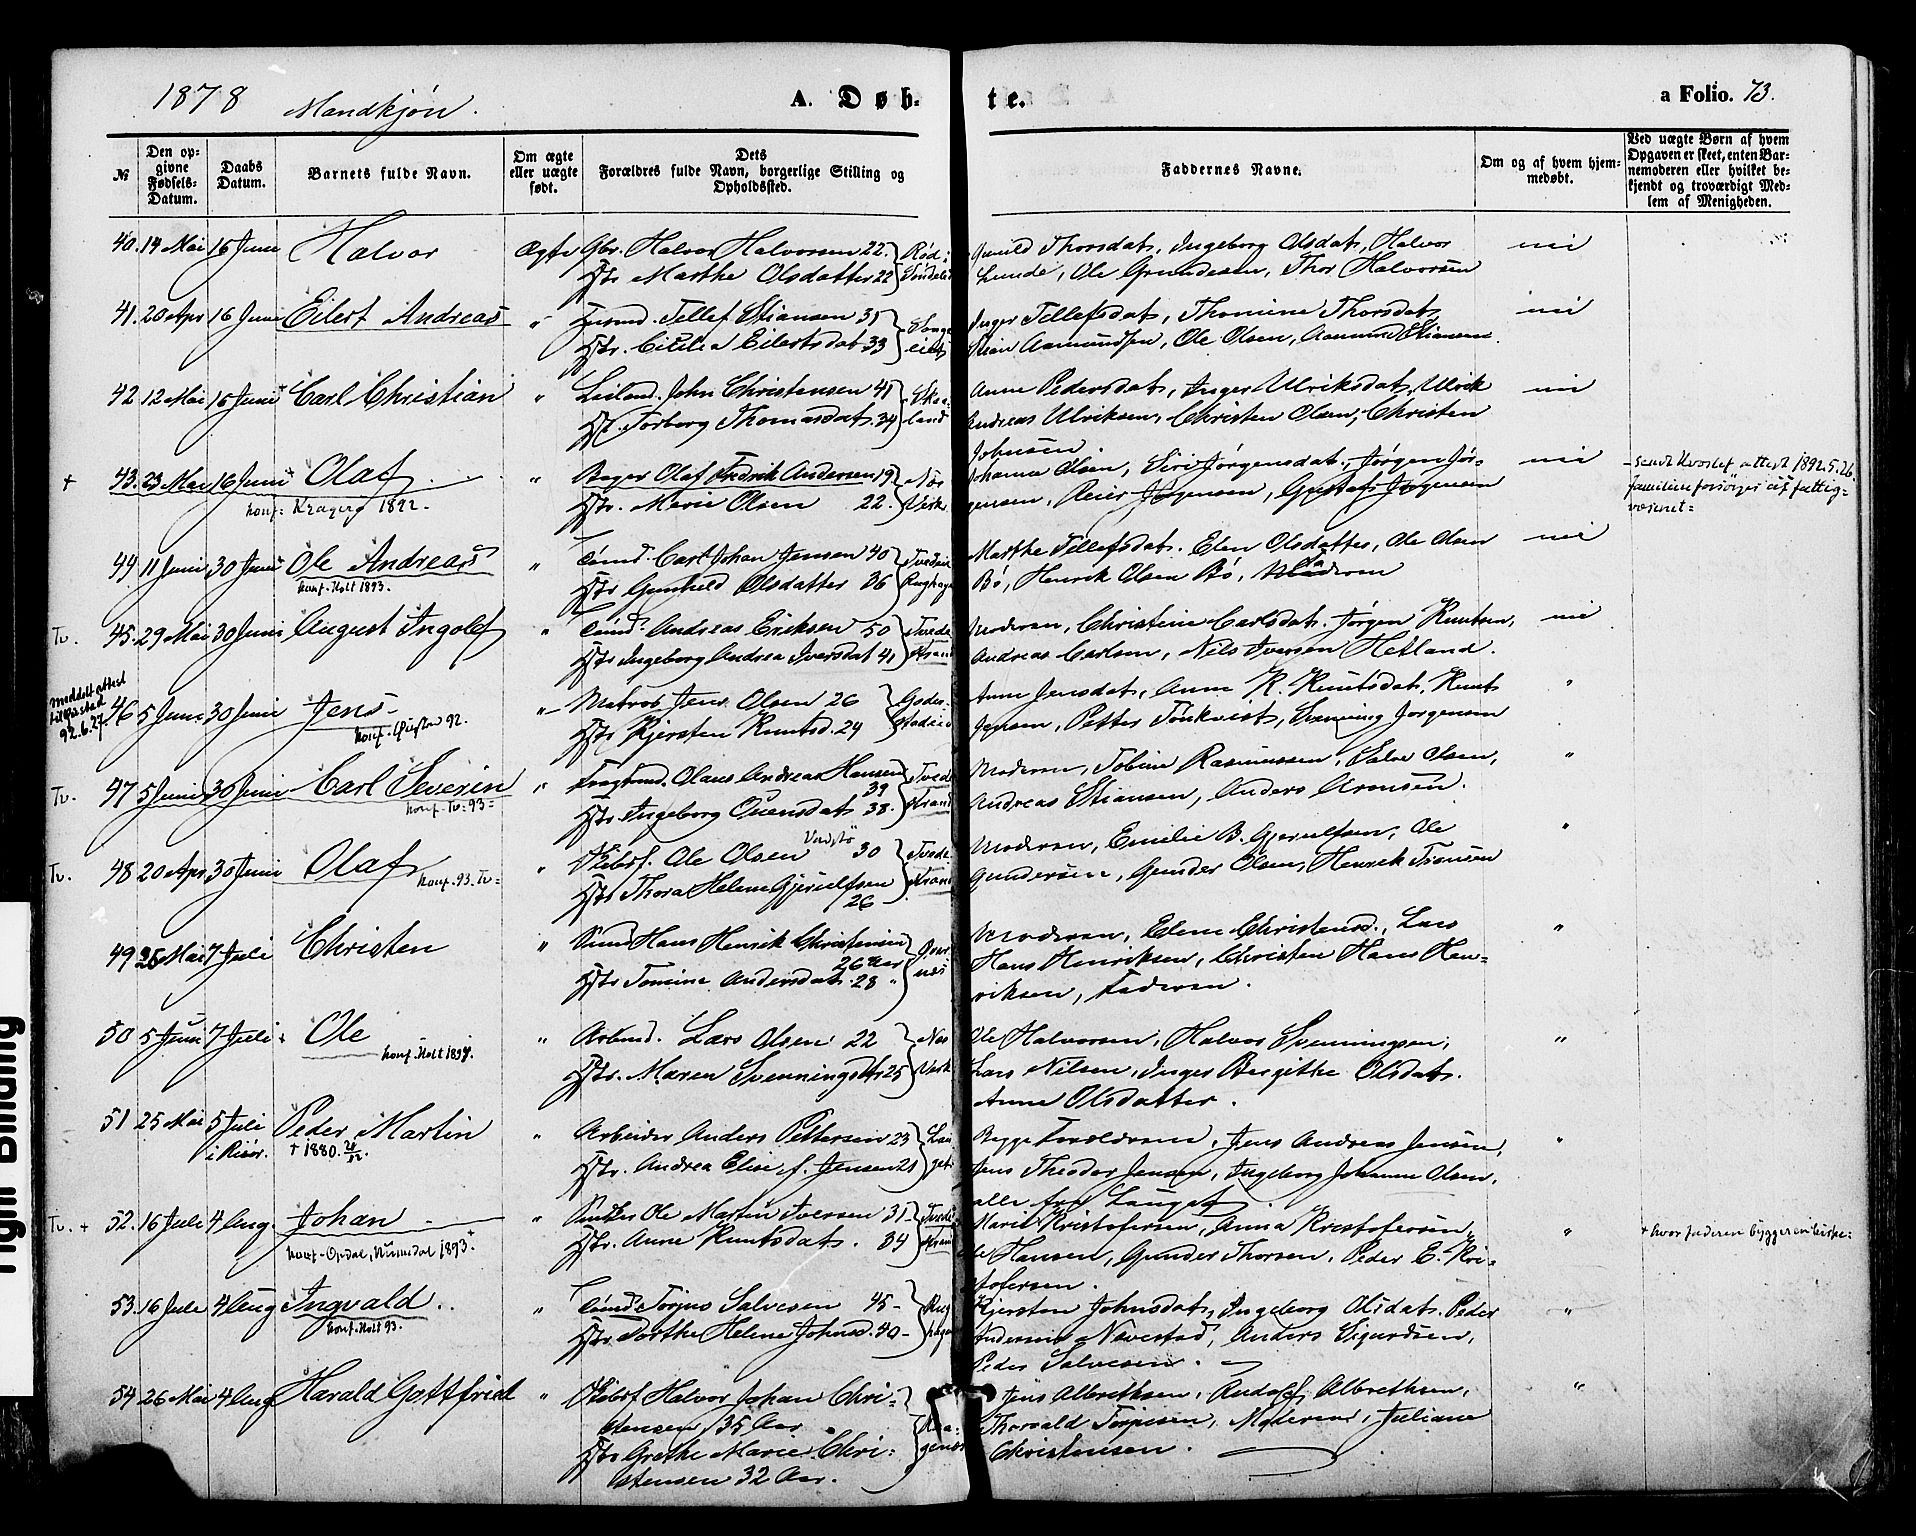 1878 Mandkjøn.
A. Døb-
te.
a Folio. 73.
№
Den opgivne Fødsels-Datum.
Daabs Datum.
Barnets fulde Navn.
Om ægte eller uægte født.
Dets Forældres fulde Navn, borgerlige Stilling og Opholdssted.
Faddernes Navne.
Om og af hvem hjemmedøbt.
Ved uægte Børn af hvem Opgaven er skeet, enten Barnemoderen eller hvilket bekjendt og troværdigt Medlem af Menigheden.
40. 14 Mai 16 Juni Halvor Ægte Gbr. Halvor Halvorsen 22.
Hstr Marthe Olsdatter 22
Gunild Thorsdat, Ingeborg Olsdat, Halvor
Lunde, Ole Gundersen, Thor Halvorsen
nei
41. 20 Apr 16 Juni Eilert Andreas " Husmd. Tellef Stiansen 35
Hstr. Cicilia Eilertsdat 33
Inger Tellefsdat, Thomine Thorsdat,
Stian Aamundsen, Ole Olsen, Aanund Stiansen.
nei
42. 12 Mai 16 Juni Carl Christian " Leilend. John Christensen 41
Hst. Torborg Thomasdat. 34
Anne Pedersdat, Inger Ulriksdat, Ulrik
Andreas Ulriksen, Christen Olsen, Christen
Johnsen.
nei
+ 43. 23 Mai 16 Juni Olaf " Bager Olaf Fredrik Andersen 19
konf. Kragerø 1892.
Hstr. Marie Olsen 22.
Næs
Verk
Johanna Olsen, Siri Jørgensdat, Jørgen Jør-
gensen, Reier Jørgensen, Gustaf Jørgensen
nei
attest 1892.5.26.
familien forsørges af fattig-
væsenet=
44 11 Juni 30 Juni Ole Andreas " Tømd. Carl Johan Jensen 40
konf. Holt 1893.
Hstr Gunhild Olsdatter 36
Marthe Tellefsdat. Elen Olsdatter, Ole Olsen
Bø, Henrik Olsen Bø, Moderen
nei
Tv. 45. 29 Mai 30 Juni August Ingolf " Tømd. Andreas Eriksen 50
Hstr Ingeborg Andrea Iversdat 41
Tvede
strand
Moderen, Christine Carlsdat. Jørgen Knutsen,
Andreas Carlsen, Nils Iversen Hetland.
nei
meddelt attest
92.6.27.
46 5 Juni 30 Juni Jens - " Matros Jens Olsen 26
Hstr Kjersten Knutsd. 24
Anne Jensdat, Anne K. Knutsdat, Knut
Jensen, Petter Tønkvist, Svenning Jørgensen
"
Tv. 47 5 Juni 30 Juni Carl Severin " Olaus Andreas Hansen
39
konf. Tv. 93=
Hstr. Ingeborg Ouensdat 38.
Tvede
strand
Moderen, Tobine Rasmussen, Salve Olsen,
Andreas Stiansen, Anders Aronsen.
"
Tv. 48 20 Apr 30 Juni Olaf " Skibsf. Ole Olsen 30
konf. 93. Tv=
Hstr Thora Helene Gjerulfsen
26
Tvede
strand
Moderen, Emilie B. Gjerulfsen, Ole
Gundersen, Gunder Olsen, Henrik Fransen
"
49 26 Mai 7 Juli Christen " Hans Henrik Christensen
26 Aar
Hstr Tomine Andersdat. 28 "
Moderen, Elene Christensd., Lars
Hans Henriksen, Christen Hans Hen-
riksen, Faderen.
"
50 5 Juni 7 Juli Ole " Arbmd. Lars Olsen 22
konf. Holt
Hstr. Maren Svenningsdtr 25
Næs
Verk
Ole Halvorsen, Halvor Svenningsen,
Lars Nilsen, Inger Birgitthe Olsdat.
Anne Olsdatter.
"
51 25 Mai 5 Juli Peder Martin " Arbeider Anders Pettersen 23
i Risør. + 1880.
Hstr. Andrea Elise, f. Jensen 21
Begge Forældrene, Jens Andreas Jensen,
Jens Theodor Jensen, Ingeborg Johanne Olsen,
alle fra Lauget
"
Tv. + 52. 16 Juli 4 Aug. Johan " Ole Martin Iversen 31
konf. Opdal, Numedal 1893+
Hstr. Anne Knutsdat. 34
Tvede
strand
Marie Kristofersen, Anna Kristofersen,
Ole Hansen, Gunder Thorsen, Peder E. Kri-
stofersen.
"
+ hvor faderen bygger en kirke=
53. 16 Juli 4 Aug Ingvald.. " Tømd. Torjus Salvesen 45
konf. Holt 93.
Hstr. Dorthe Helene Johnsd. 40
Kjersten Johnsdat, Ingeborg Olsdat. Peder
Andersen Navestad, Anders Sigurdsen,
Peder Salvesen.
"
54 26 Mai 4 Aug Harald Gottfried " Skibsf. Halvor Johan Chri-
stensen 35 Aar
Hstr Grethe Marie Chri-
stensen 32 Aar.
Jens Albrethsen, Rudolf Albrethsen,
Thorvald Torjusen, Moderen, Juliane
Christensen.
"
Tight Binding